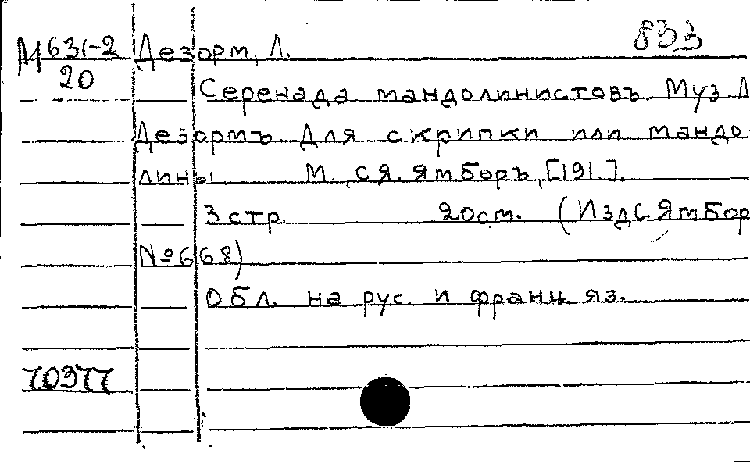 М631-2 Дезорм, Л. 833
20
Серенада мандолинистовъ. Муз. Л
Дезормъ. Для скрипки или мандо
лины М., С.Я. Ямборъ, [191.].
3 стр. 20см. (Изд. С. Ямбор
№668)
Обл. на рус. и франц. яз.
70377